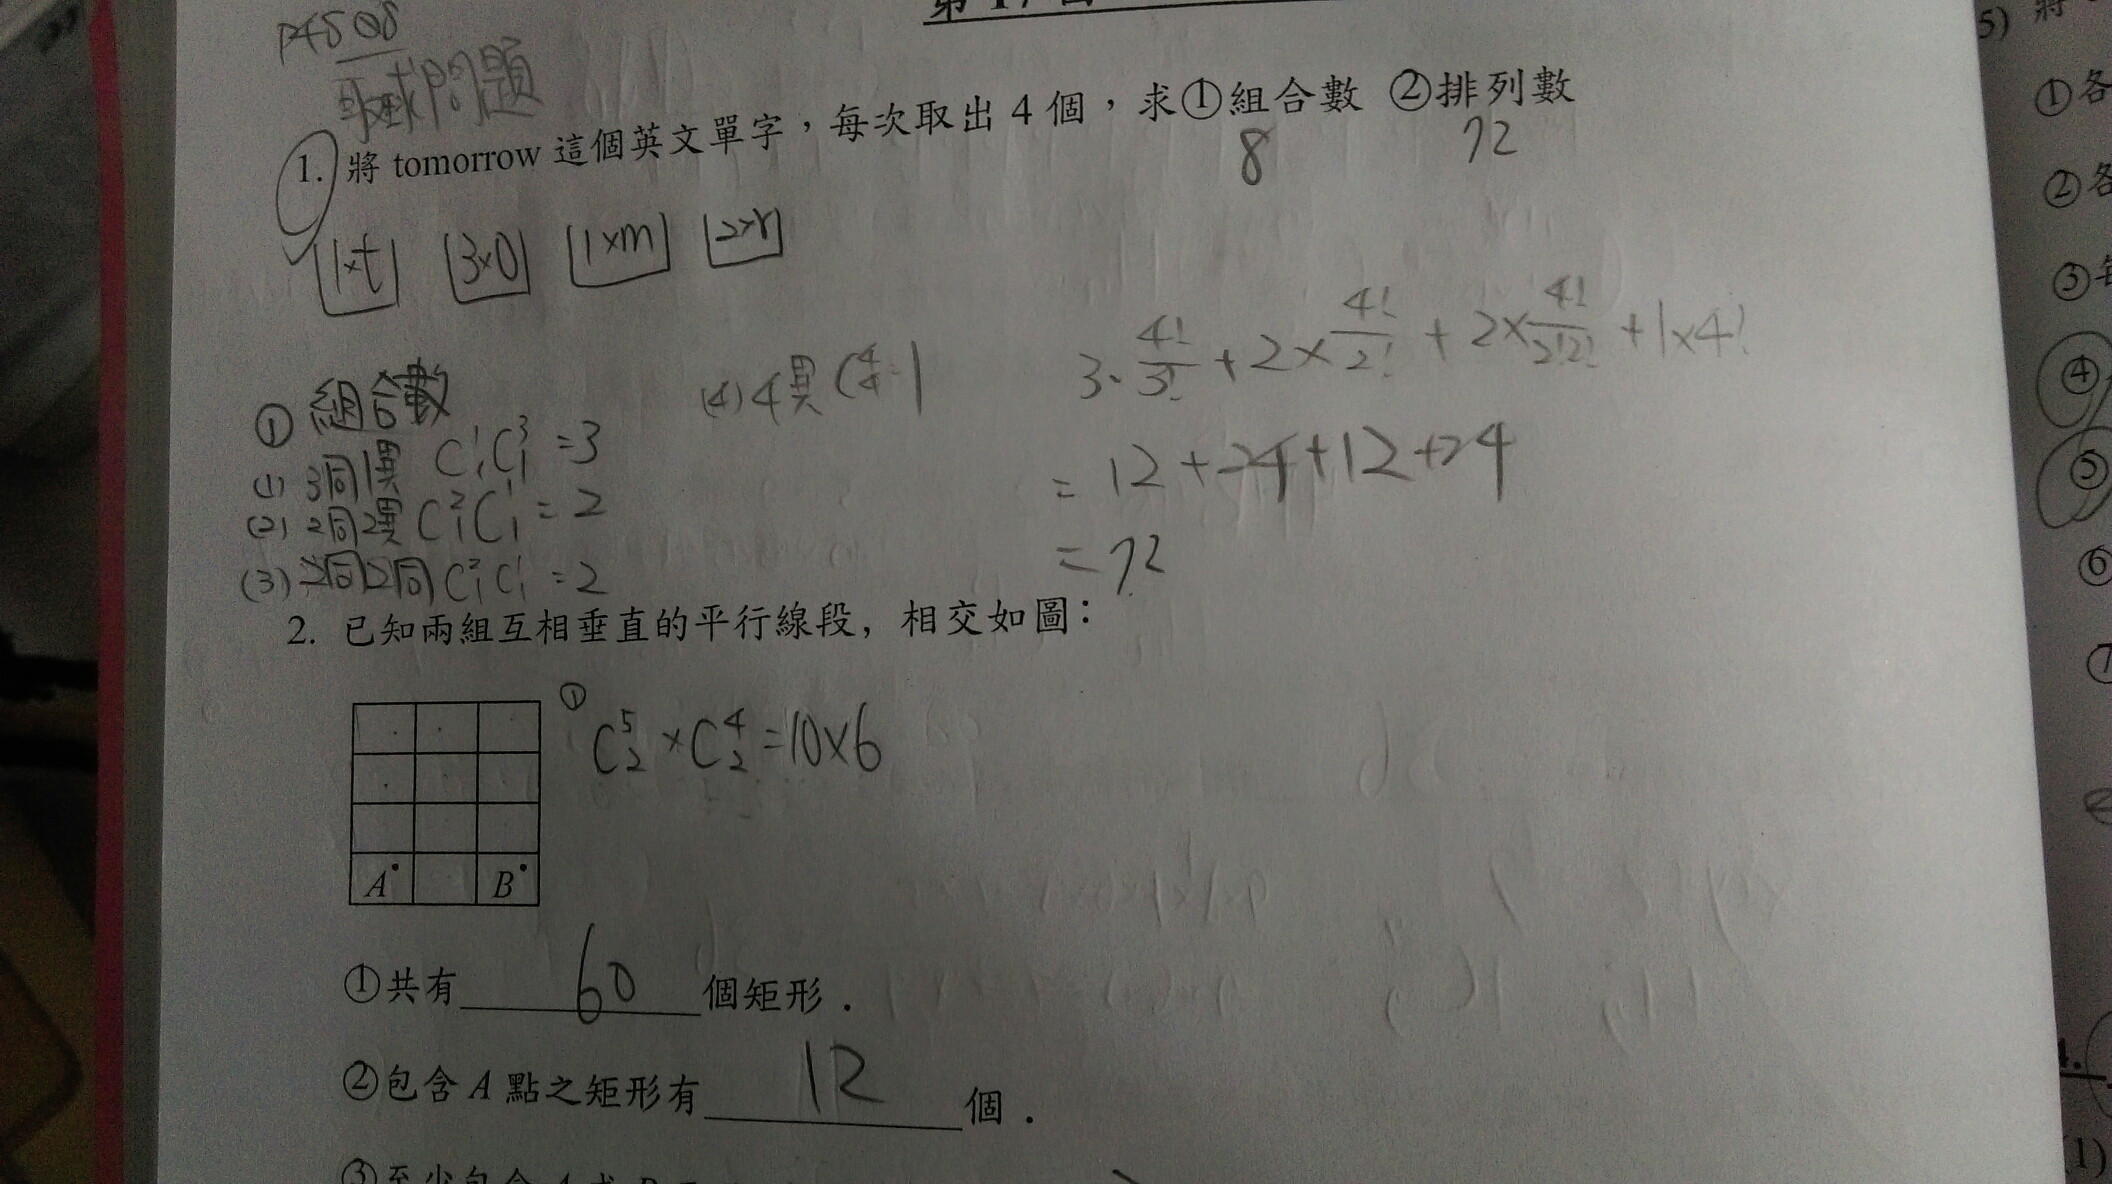 P45 Q8
取球問題
1. 將 tomorrow 這個英文單字，每次取出 4 個，求①組合數 ②排列數
8 72
1×t 3×O 1×m 2×r
① 組合數
(1) 3同1異 C¹₁C³₁=3
(2) 2同2異 C²₁C¹₁=2
(3) 2同2同 C²₁C¹₁=2
(4) 4異 C⁴₄=1
3·4!/3!+2×4!/2!+2×4!/2!2!+1×4!
=12+24+12+24
=72
2. 已知兩組互相垂直的平行線段，相交如圖：
① C⁵₂×C⁴₂=10×6
A B
①共有 60 個矩形．
②包含 A 點之矩形有 12 個．
5) 將
①各
②各
③每
④
⑤
⑥
(1)